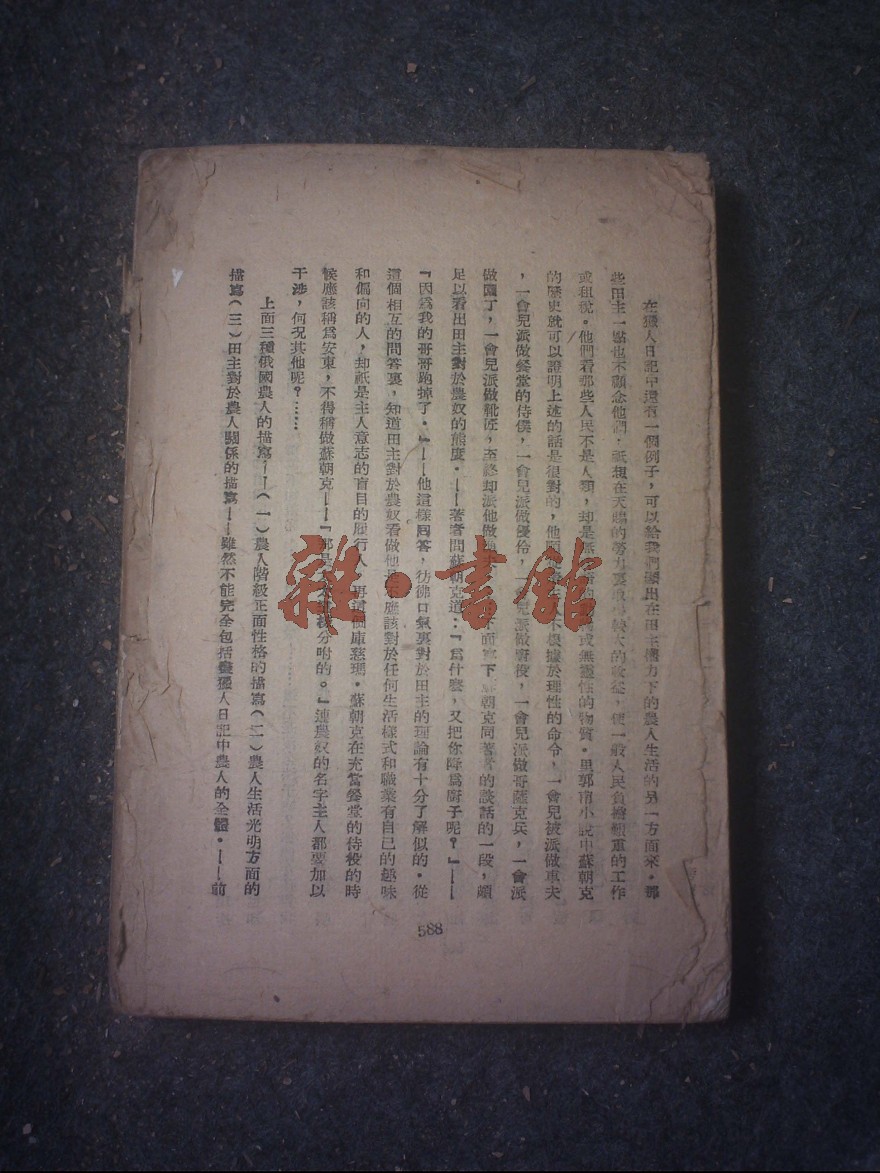 在獵人日記中還有一個例子，可以給我們顯出在田主權力下的農人生活的另一方面來。那
些田主一點也不顧念他們，祇想在天賜的勞力裏收 較大的 益，使一般人民負擔頗重的工作
或租稅。他們看那些人民不是人類，却是無 的 或無靈性的物質。里郭甫小說中蘇朝克
的歷史就可以證明上述的話是很對的，他 不根據於理性的命令，一會兒被派做車夫
，一會兒派做餐堂的侍僕，一會兒派做優伶，一會兒派做 役，一會兒派做哥薩克兵，一會派
做園丁，一會兒派做靴匠，至終却派他做 面 下蘇朝克同著者的談話的一段，頗
足以看出田主對於農奴的態度。——著者問蘇朝克道：『爲什麼，又把你降爲厨子呢？』——
『因爲我的哥哥跑掉了。』——他這樣回答，彷彿口氣裏對於田主的理論有十分了解似的。從
這個相互的問答裏，知道田主對於農奴看做他是 應該對於任何生活樣式和職業有自己的趣味
和偏向的人，却祇是主人意志的盲目的履行人。再這個庫慈瑪·蘇朝克在充當餐堂的侍役的時
候應該稱爲安東，不得稱做蘇朝克——『那是 分咐的。』連農奴的名字主人都要加以
干涉，何況其他呢？……
上面三種俄國農人的描寫——（一）農人階級正面性格的描寫（二）農人生活光明方面的
描寫（三）田主對於農人關係的描寫——雖然不能完全包括盡獵人日記中農人的全體。——前
588
雜·書館